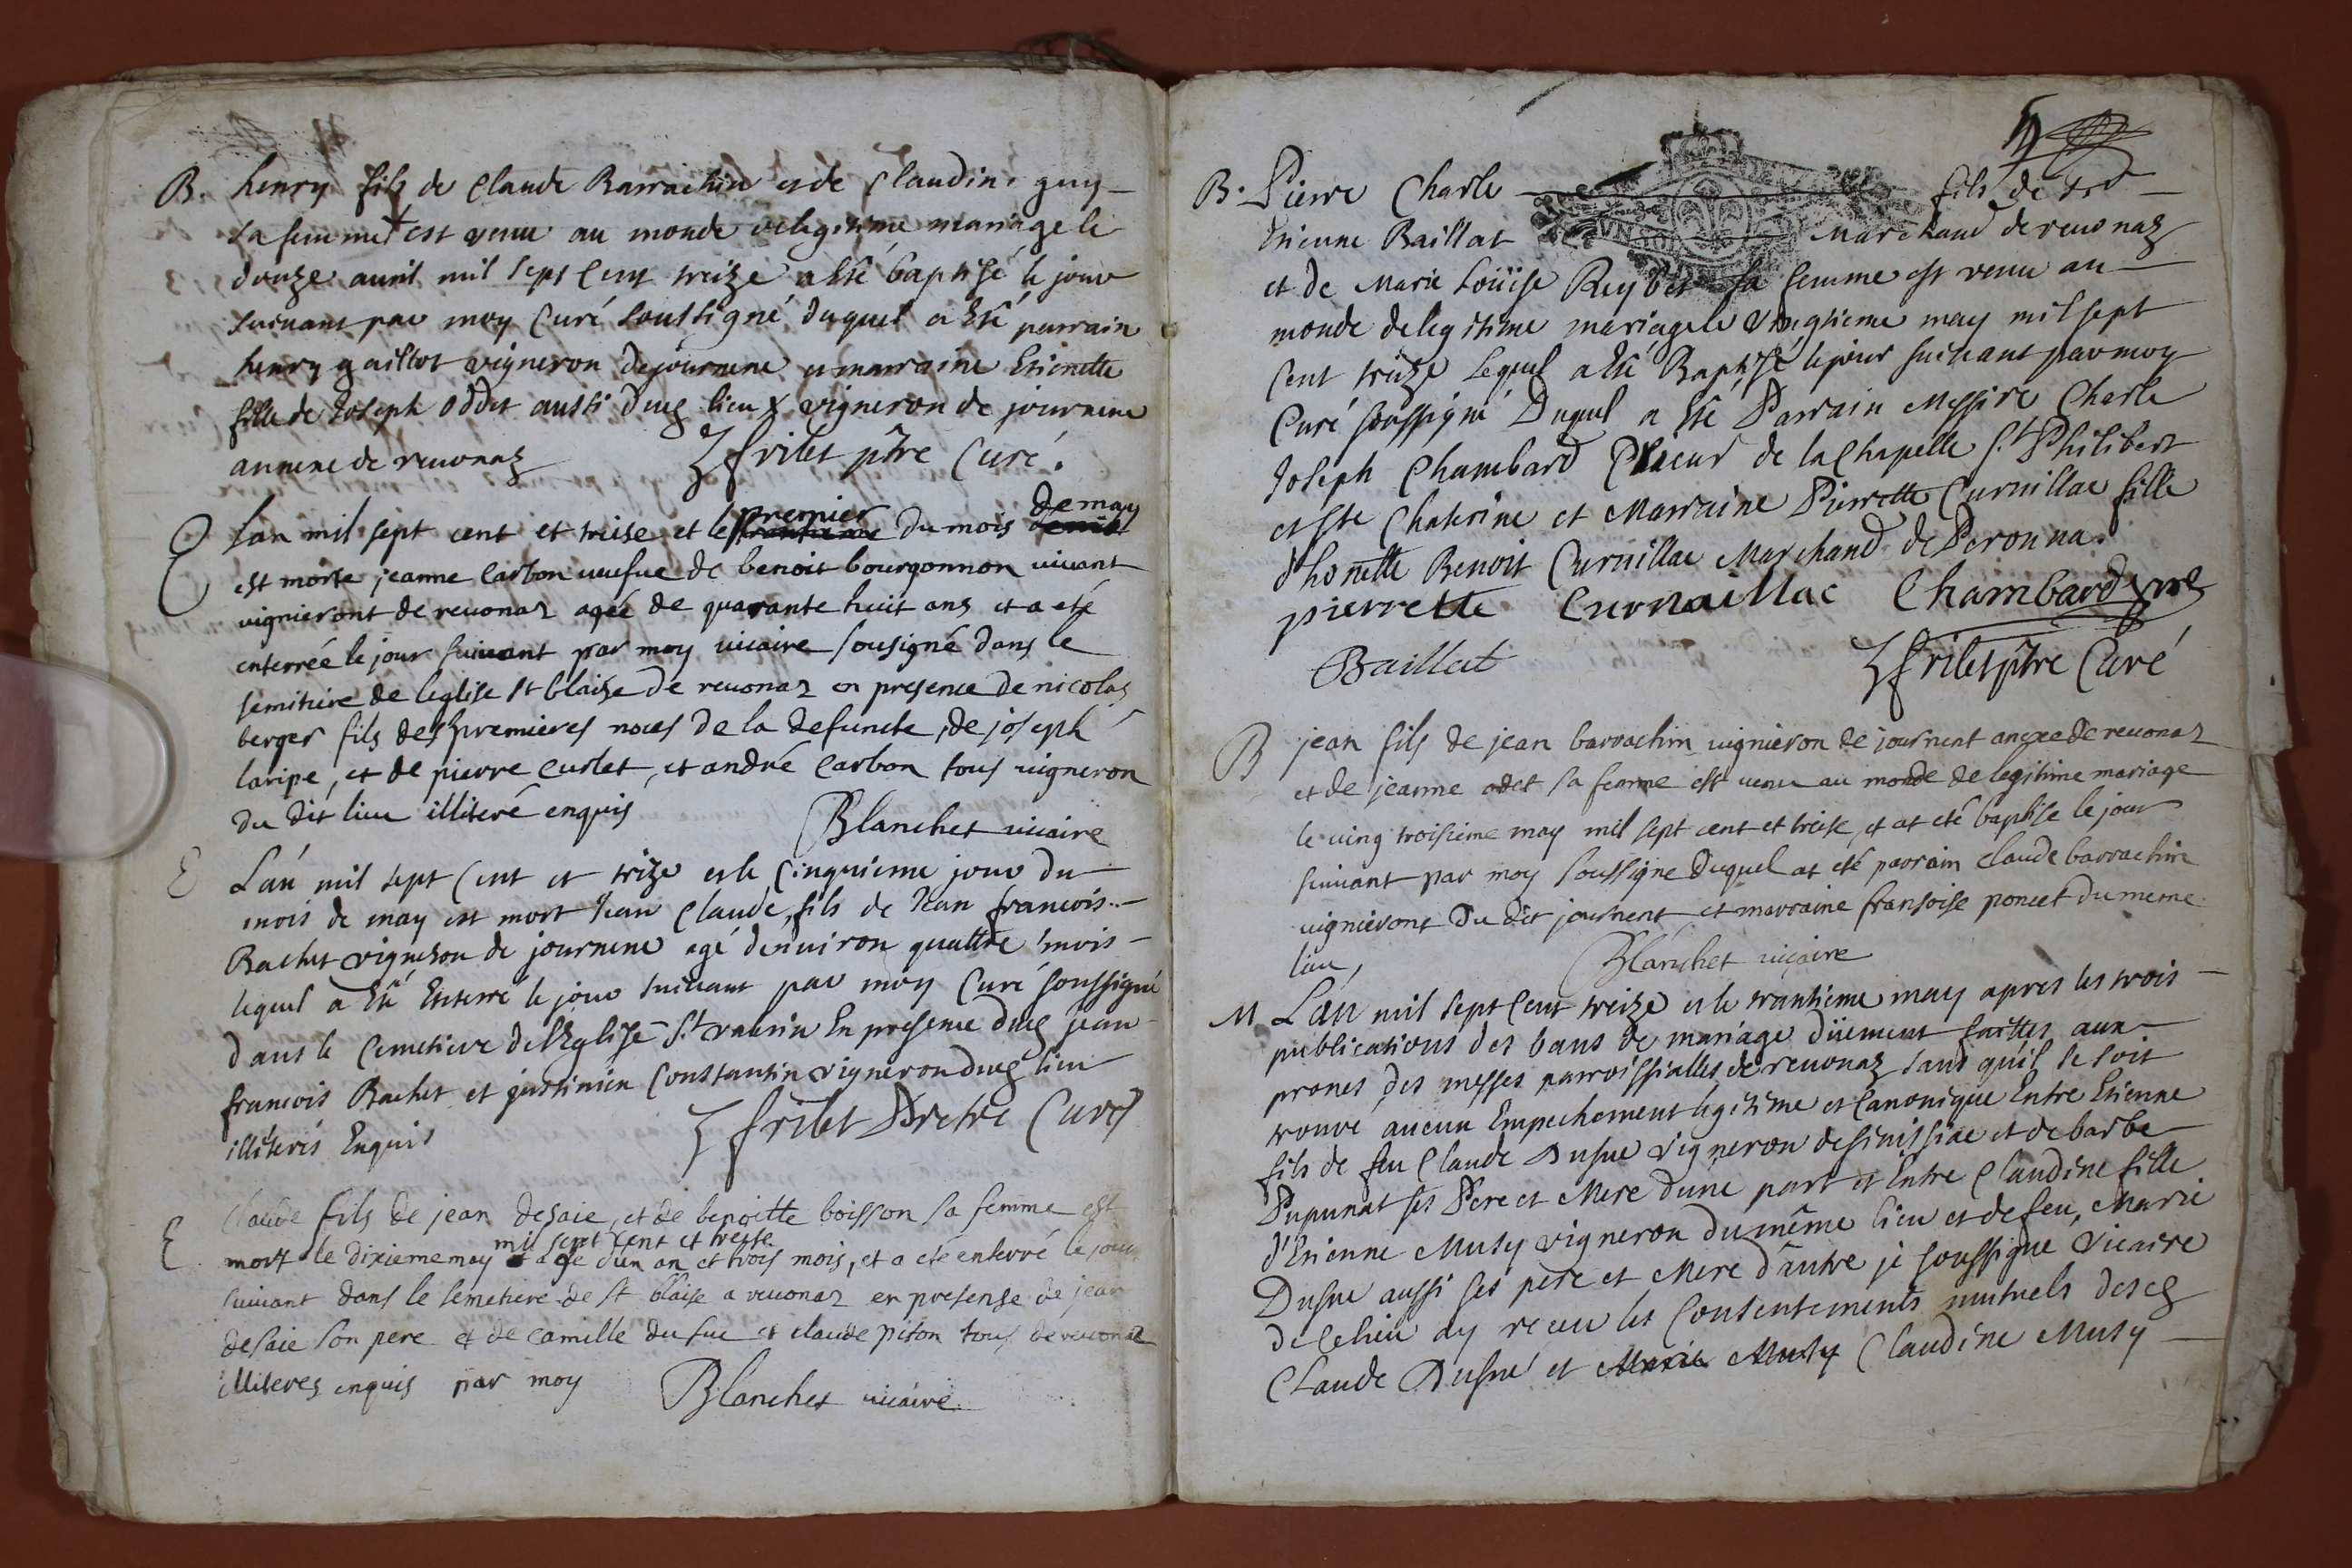 B. henry fils de Claude Barrachin et de Claudine guy
sa femme + est venu au monde de legitime mariage le
douze auril mil sept Cent treize a Esté baptisé le jour
suivant par moy Curé soussigné duquel a Esté parrain
henry gaillot vigneron de journene et marraine Etienette
fille de Joseph oddet aussi dud lieu x vigneron de journene
annexe de reuonaz frilet ptre Curé.
E Lan mil sept cent et treise et le premier du mois de may
est morte jeanne Carbon ueufue de benoit bourgonnon uiuant
vignieront de reuonaz agée de quarante huit ans et a eté
enterrée le jour suiuant par moy uicaire sousigné dans le
semitiere de leglise st blaise de reuonaz en presence de nicolas
berger fils des premieres noces de la defuncte, de joseph
laripe, et de pierre curlet, et andré Carbon tous uigneron
du dit lieu illiteré enquis
Blanchet uicaire
E L'an mil sept Cent et trize et le Cinquieme jour du
mois de may est mort Jean Claude, fils de Jean francois
Rachet vigneron de journene agé denuiron quattre mois
lequel a Esté Enterré le jour suivant par moy Curé soussigné
dans le Cemetiere de l'Eglise St valerin En presence dud jean
francois Rachet et justinien Constantin vigneron dud lieu
illiterés Enquis frilet Pretre Curé
E Claude fils de jean desaie, et de benoitte boisson sa femme est
mort le dixieme may mil sept cent et treise agé d'un an et trois mois, et a eté enterré le jour
suiuant dans le semetiere de st blaise a reuonaz en presense de jean
desaie son pere et de camille du fue et claude piton tous de reuonaz
illiteres enquis par moy Blanchet uicaire
B. Pierre Charle fils de Sr
Etienne Baillat Marchand de reuonaz
et de Marie Loüise Reybet sa femme est venu au
monde de legitime mariage le vingtieme may mil sept
Cent trize Lequel a Esté Baptisé le jour suivant par moy
Curé soussigné Duquel a Esté Parrain Messire Charle
Joseph Chambard Prieur de la Chapelle St Philibert
et Ste Chaterine et Marraine Pierrette Curnillac fille
d'honnette Benoit Curnillac Marchand de Peronna.
pierrette Curnaillac Chambard
Baillat frilet ptre Curé
B jean fils de jean barrachin uignieron de journent anexe de reuonaz
et de jeanne odet sa femme est uenu au monde de legitime mariage
le uing troisieme may mil sept cent et treise, et at eté baptise le jour
suiuant par moy soussigne duquel at eté parrain claude barrachin
uignieront du dit journent et marraine fransoise poncet du meme
lieu, Blanchet uicaire
M L'an mil sept Cent treize et le trantieme may apres les trois
publications des bans de mariage düement faittes aux
prones des messes parroissialles de reuonaz sans quil se soit
trouvé aucun Empechement legitime et Canonique Entre Etienne
fils de feu Claude Dufue vigneron de sinissiac et de barbe
Pupunat ses Pere et Mere d'une part et Entre Claudine fille
d'Etienne Musy vigneron du même lieu et de feu, Marie
Dufue aussi ses pere et Mere d'autre je soussigne Vicaire
de Celieu ay receu les Consentements mutuels desd
Claude Dufue et Marie Musy Claudine Musy